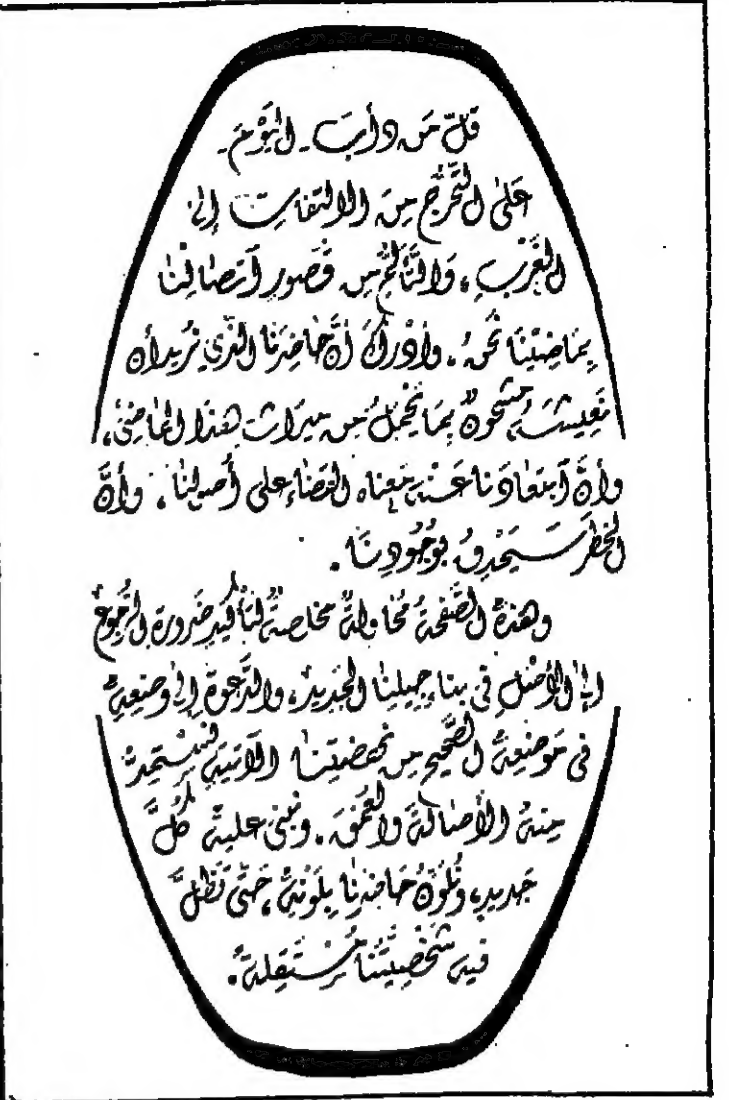 قَلَّ مَن دأبَ ـ اليَوْمَ ـ
عَلَى التَّحَرُّجِ مِنَ الالتفاتِ إلى
الغَرْبِ، وَالتَّأَلُّمِ مِن قُصورِ اتصالِنا
بِمَاضِينَا نَحْنُ. وأدْرَكَ أنَّ حَاضِرَنا الذي نُريد أن
نَعِيشَهُ مشحونٌ بِمَا يَحْمِلُ مِن مِيرَاث هذَا الماضِي،
وأنَّ ابتعادَنا عَنْهُ مَعناه القضاء على أصولنا، وأنَّ
الخطرَ سَيَحْدِقُ بوُجُودِنَا.
وهذهِ الصَّفحةُ مُحاولةٌ مخلصةٌ لتأكيدِ ضَرورةِ الرُّجوعِ
إلى الأصْلِ في بناءِ جيلِنا الجَديدِ، والدَّعوةِ إلى وضعِهِ
في مَوضعِهِ الصَّحيحِ مِن نَهضَتِنَا الآتيةِ لنستمِدَّ
مِنهُ الأصالةَ والعُمْقَ. ونَبني عليهِ كُلَّ
جَديدٍ، ونُلَوِّنُ حَاضِرَنا بِلَوْنِهِ، حَتّى تَظَلَّ
فيه شَخْصِيَّتُنا مُسْتَقِلةً.